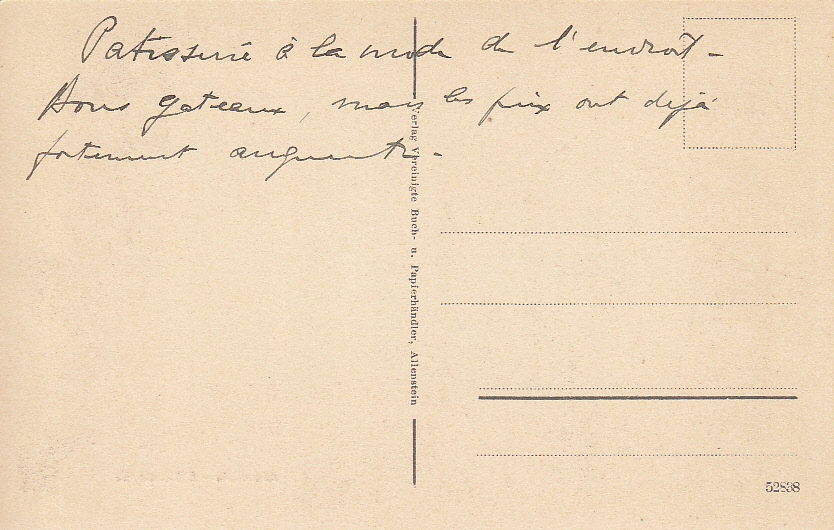 Patisserie à la mode de l'endroit -
Bons gateaux, mais les prix ont dejà
fortement augmentr -
Verlag Vereinigte Buch- u. Papierhändler, Allenstein
52838